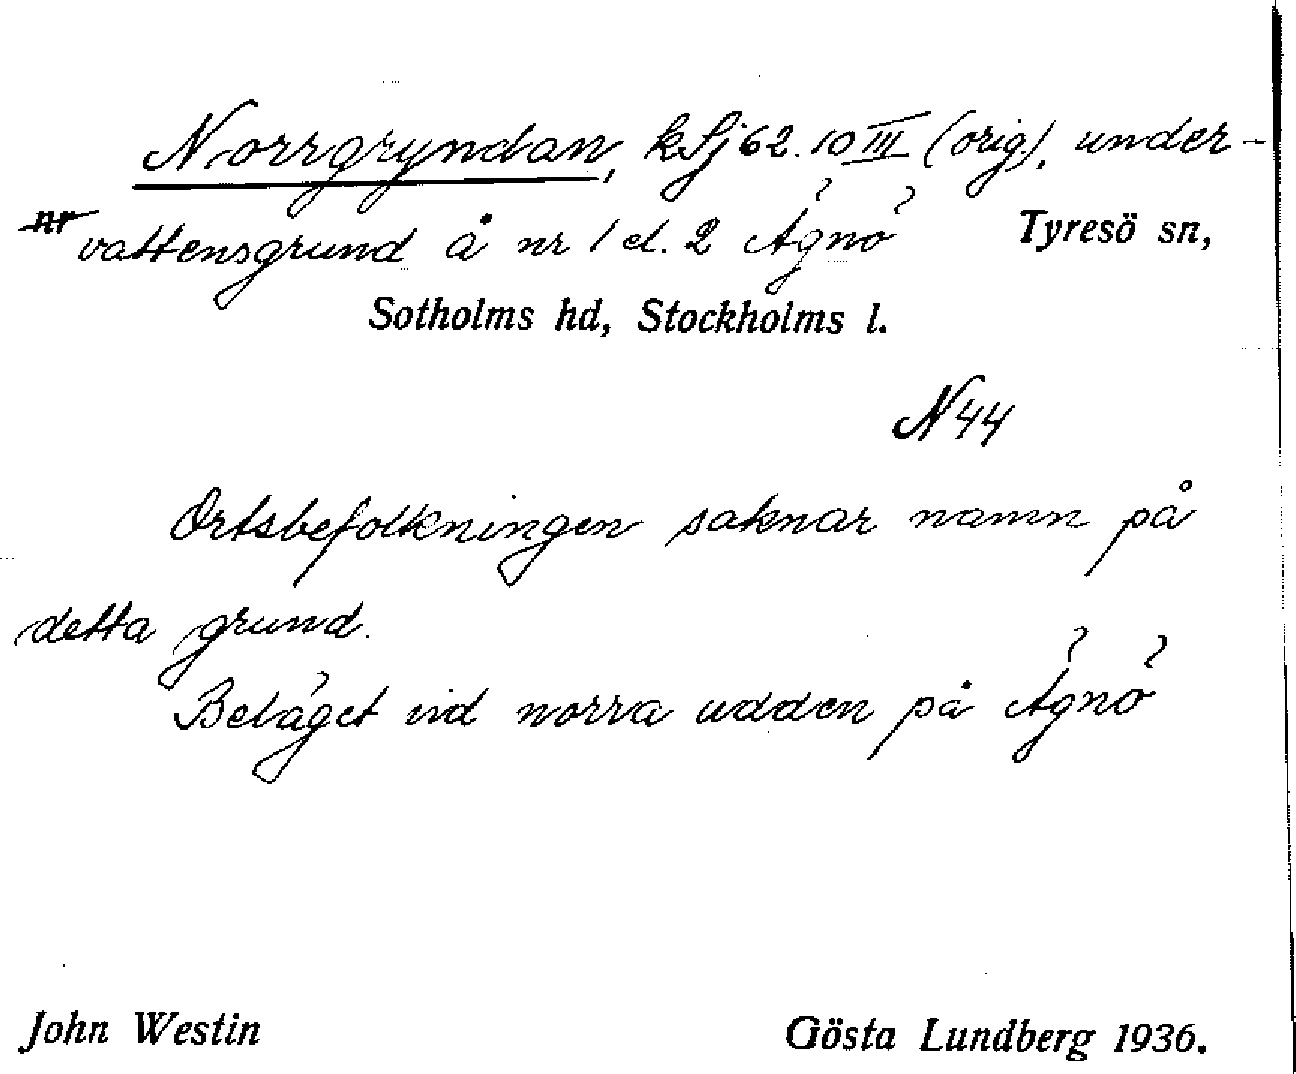 Norrgryndan, kSj 62. 10 III (orig), under-
nr vattensgrund å nr 1 el. 2 Ägnö Tyresö sn,
Sotholms hd, Stockholms l.
N 44
Ortsbefolkningen saknar namn på
detta grund.
Beläget vid norra udden på Ägnö
John Westin Gösta Lundberg 1936.